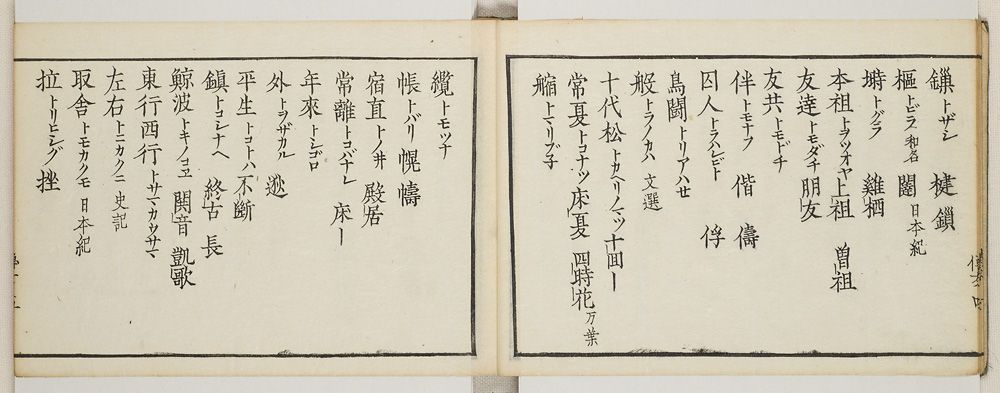 鏁トザシ 楗鎖
樞トビラ 和名 闔 日本紀
塒トグラ 雞栖
本祖トヲツオヤ 上祖 曽祖
友達トモダチ 朋友
友共トモドチ
伴トモナフ 偕 儔
囚人トラハレビト 俘
鳥闘トリアハせ
般トラノカハ 文選
十代松トカヘリノマツ 十囬ー
常夏トコナツ 床夏 四時花 万葉
艍トマリブ子
纜トモツナ
帳トバリ 幌 幬
宿直トノ井 殿居
常離トコバナレ 床ー
年來トシゴロ
外トヲザカル 逖
平生トコトハ 不断
鎮トコシナヘ 終古 長
鯨波トキノコヱ 関音 凱歌
東行西行トサマカウサマ
左右トニカクニ 史記
取舎トモカクモ 日本紀
拉トリヒシグ 挫